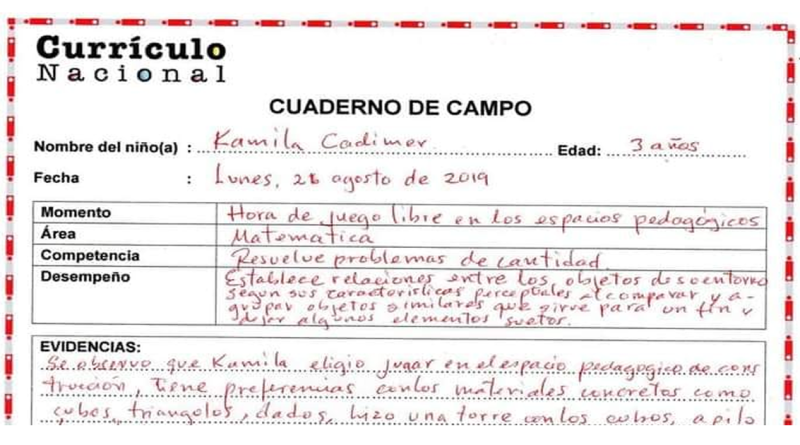 Currículo
Nacional
CUADERNO DE CAMPO
Nombre del niño(a) : Kamila Cadimer Edad: 3 años
Fecha : Lunes, 26 agosto de 2019
Momento Hora de juego libre en los espacios pedagógicos
Área Matematica
Competencia Resuelve problemas de cantidad
Desempeño Establece relaciones entre los objetos de su entorno
según sus características perceptuales al comparar y a-
grupar objetos similares que sirve para un fin y
dejar algunos elementos sueltos.
EVIDENCIAS:
Se observo que Kamila eligio jugar en el espacio pedagogico de cons
trucción, tiene preferencias con los materiales concretos como
cubos, triangolos, dados, hizo una torre con los cubos, apilo